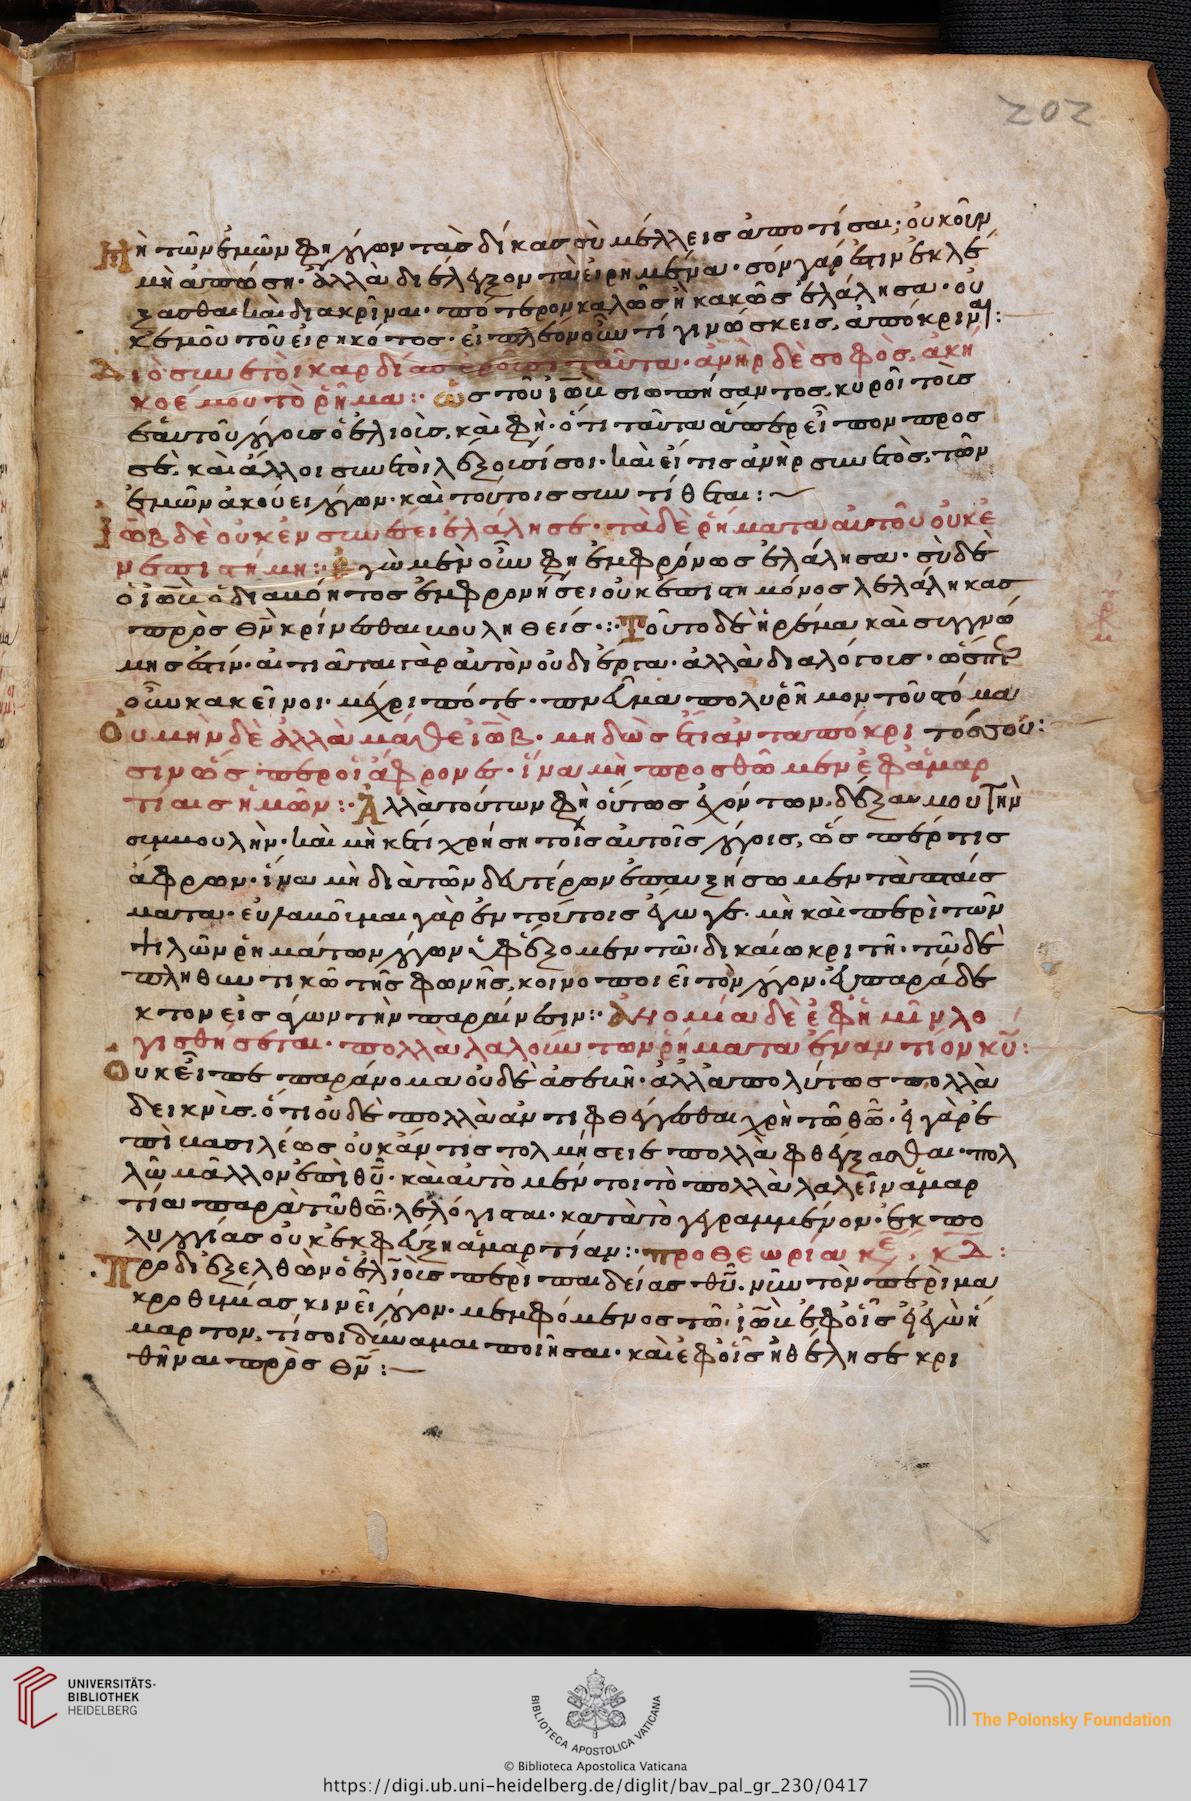 202
Μὴ τῶν ἐμῶν δὴ λόγων τὰς δίκας σὺ μέλλεις ἀποτίσαι; οὐκοῦν
μὴ ἀπώση· ἀλλὰ διέλεγξον τὰ εἰρημένα· σόν γάρ ἐστιν ἐκλέ
ξασθαι καὶ διακρῖναι· πότερον καλῶς ἢ κακῶς ἐλάλησα· οὐ
κ ἐμοῦ τοῦ εἰρηκότος· εἰ πλέον οὖν τί γινώσκεις, ἀπόκριναι:
Διὸ συνετοὶ καρδίας ἐροῦσι ταῦτα· ἀνὴρ δὲ σοφὸς, ἀκή
κοέ μου τὸ ῥῆμα: ὡς τοῦ ἰὼβ σιωπήσαντος, κυροῖ τοὺς
ἑαυτοῦ λόγους ὁ ἐλιοῦς, καὶ φησὶν· ὅτι ταῦτα ἅπερ εἶπον πρὸς
σὲ, καὶ ἄλλοι συνετοὶ λέξουσί σοι· καὶ εἴ τις ἀνὴρ συνετὸς, τῶν
ἐμῶν ἀκούει λόγων· καὶ τούτοις συντίθεται:
Ἰὼβ δὲ οὐκ ἐν συνέσει ἐλάλησε· τὰ δὲ ῥήματα αὐτοῦ οὐκ ἐ
ν ἐπιστήμη: ἐγὼ μὲν οὖν φησὶν ἐμφρόνως ἐλάλησα· σὺ δὲ
πρὸς θν κρίνεσθαι βουληθείς: Τοῦτο δὲ ἠρέμα καὶ συγγνώ
μης ἐστίν· αἰτιᾶται γὰρ αὐτὸν οὐ δι' ἔργα· ἀλλὰ διὰ λόγους· ὥσπερ
οὖν κἀκεῖνοι· μέχρι πότε· πνεῦμα πολυρῆμον τοῦ στόμα
τός σου:
Οὐ μὴν δὲ ἀλλὰ μάθε ἰώβ· μὴ δῷς ἔτι ἀνταπόκρι
σιν ὥσπερ οἱ ἄφρονες· ἵνα μὴ προσθῶμεν ἐφ' ἁμαρ
τίαις ἡμῶν: Ἀλλὰ τούτων φησὶν οὕτως ἐχόντων, δέξαι μου τὴν
συμβουλὴν· καὶ μὴ κέτι χρήση τοῖς αὐτοῖς λόγοις, ὥσπέρ τις
ἄφρων· ἵνα μὴ διὰ τῶν δευτέρων ἐπαυξήσωμεν τὰ πταίς
ματα· εὐλαβοῦμαι γὰρ ἐν τούτοις ἔγωγε· μὴ καὶ περὶ τῶν
ψιλῶν ῥημάτων λόγον ὑφέξομεν τῶ δικαίω κριτῆ· τῶ δὲ
πληθυντικῶ τῆς φωνῆς, κοινοποιεῖ τὸν λόγον· εὐπαράδε
κτον εἰσάγων τὴν παραίνεσιν: ἀνομία δὲ ἐφ' ἡμῖν λο
γισθήσεται· πολλὰ λαλούντων ῥήματα ἐναντίον κυ:
Οὐκ εἶπε παράνομα οὐδὲ ἀσεβῆ· ἀλλ' ἀπολύτως πολλὰ
δεικνὺς· ὅτι οὐδὲ πολλὰ ἀντιφθέγγεσθαι χρὴ τῶ θῶ· εἰ γὰρ ἐ
πὶ βασιλέως οὐκ ἄν τις τολμήσειε πολλὰ φθέγξασθαι· πολ
λῶ μᾶλλον ἐπὶ θυ· καὶ αὐτὸ μέντοι τὸ πολλὰ λαλεῖν ἁμαρ
τία παρὰ τῶ θῶ λελόγισται· κατὰ τὸ γεγραμμένον· ἐκ πο
λυλογίας οὐκ ἐκφεύξη ἁμαρτίαν: προθεωρία κεφ, κδ:
Προδιεξελθὼν ὁ ἐλιοῦς περὶ παιδείας θυ· νῦν τὸν περὶ μα
κροθυμίας κινεῖ λόγον· μεμφόμενος τῶ ἰὼβ ἐφ' οἷς εἰ ἐγὼ ἥ
μαρτον, τί σοι δύναμαι ποιῆσαι· καὶ ἐφ' οἷς ἠθέλησε κρι
θῆναι πρὸς θν:
UNIVERSITÄTS-
BIBLIOTHEK
HEIDELBERG
BIBLIOTECA APOSTOLICA VATICANA
The Polonsky Foundation
© Biblioteca Apostolica Vaticana
https://digi.ub.uni-heidelberg.de/diglit/bav_pal_gr_230/0417